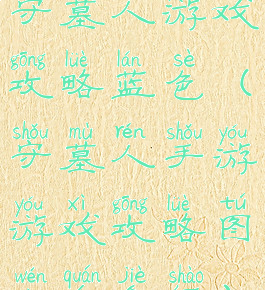 守墓人游戏
gōng lüè lán sè
攻略蓝色（
shǒu mù rén shǒu yóu
守墓人手游
yóu xì gōng lüè tú
游戏攻略图
wén quán jiě shào